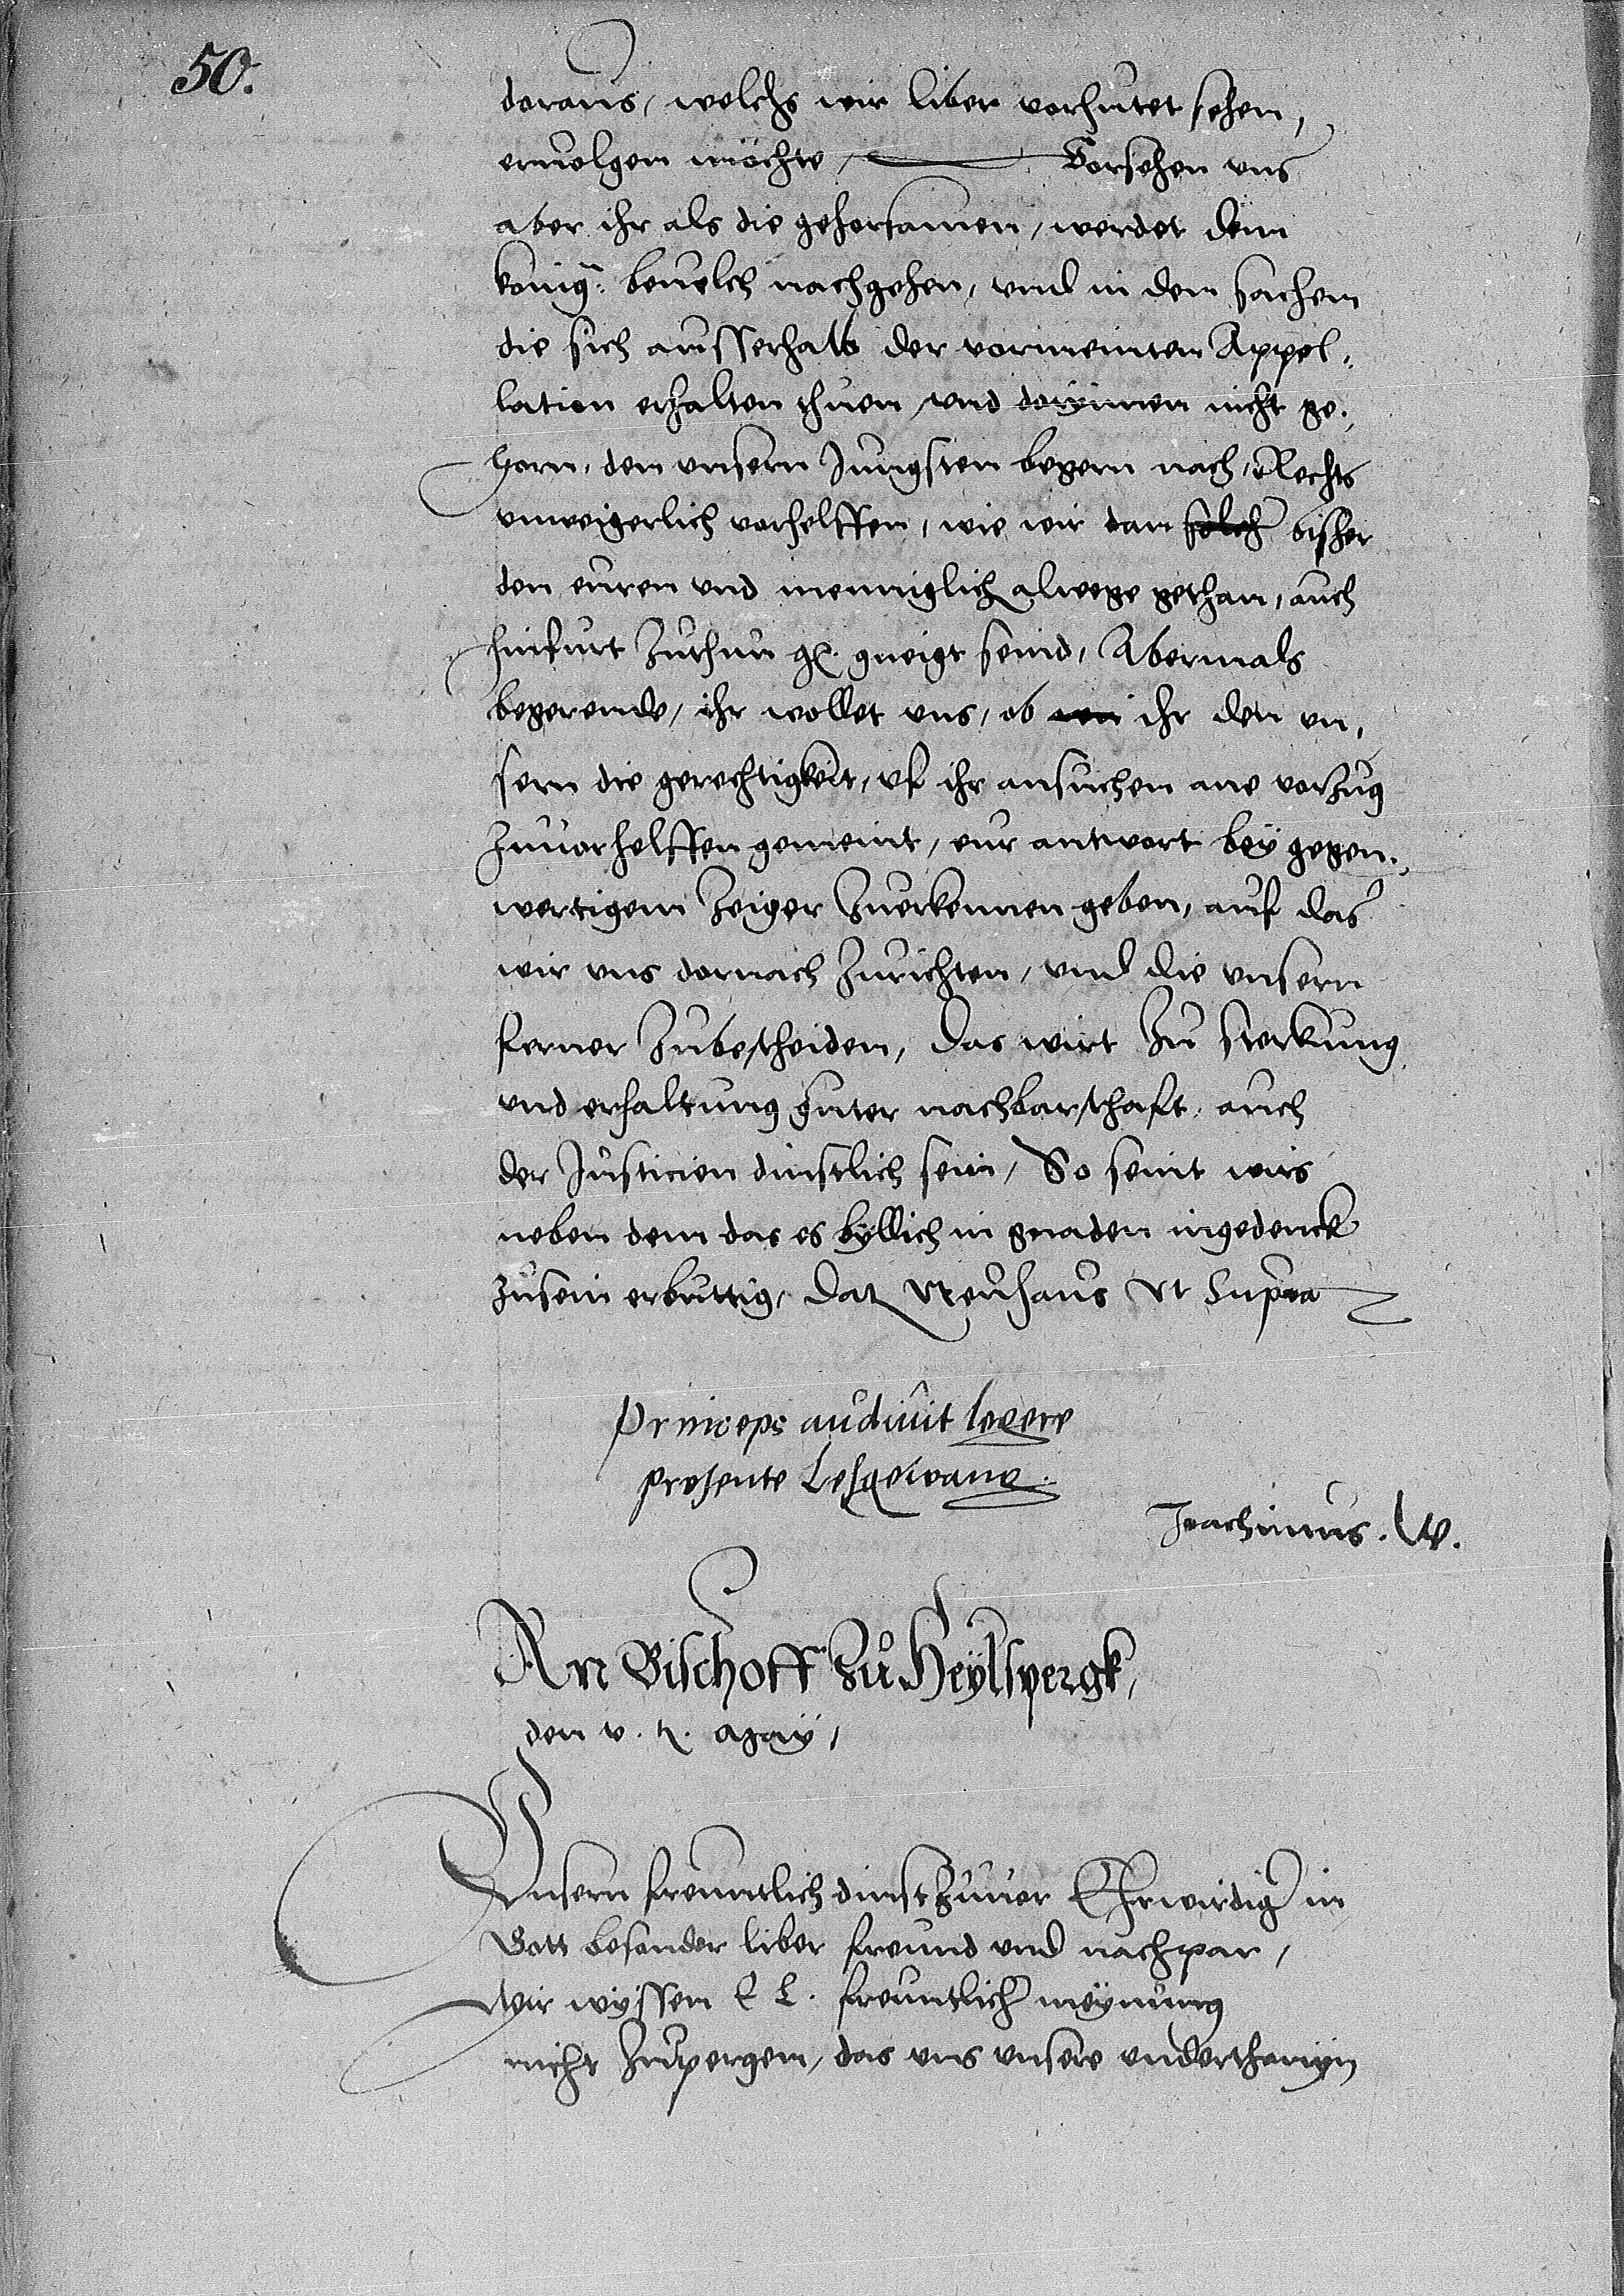 50.
doraus, welchs wir liber vorhutet sehen,
ervolgen möchte, Vorsehen uns
aber ihr als die gehorsamen, werdet dem
königˉ. bevelch nachgehen, und in den sachen
die sich ausserhalb der vormeinten Appel,
lation erhalten thuen, und dorynnen nicht ge,
horn, den unsern Jungsten begern nach, Rechts
unweigerlich vorhelffen, wie wir dan solchs bisher
den euren und menniglich alwege gethan, auch
hinfurt zuthun g. gneigt seind, Abermals
begerende, ihr wollet uns, ob ihr den un,
sern die gerechtigkeit, uf ihr ansuchen ane vorzug
zuuorhelffen gemeint, eur antwort bey gegen,
wertigem Zeiger zuerkennen geben, auf das
wir uns dornach zurichten, und die unsern
ferner zubescheiden, das wirt zu sterkung
und erhaltung guter nachbarschaft, auch
der Justicien dinstlich sein, So seint wirs
neben dem das es byllich in gnaden ingedenck
zusein erbuttig, Dat Neuhaus Ut Supra
Princeps audivit legere
presente Lesgewang.
Joachimus. W.
An Bischoff Zu Heylspergk,
den v. May,
Unsern freuntlich dinst zuuor Ehrwirdig in
Gott besonder liber freund und nachpar,
Wir wyssen E L. freuntlicher meynung
nicht zupergen, das uns unsere underthanyn